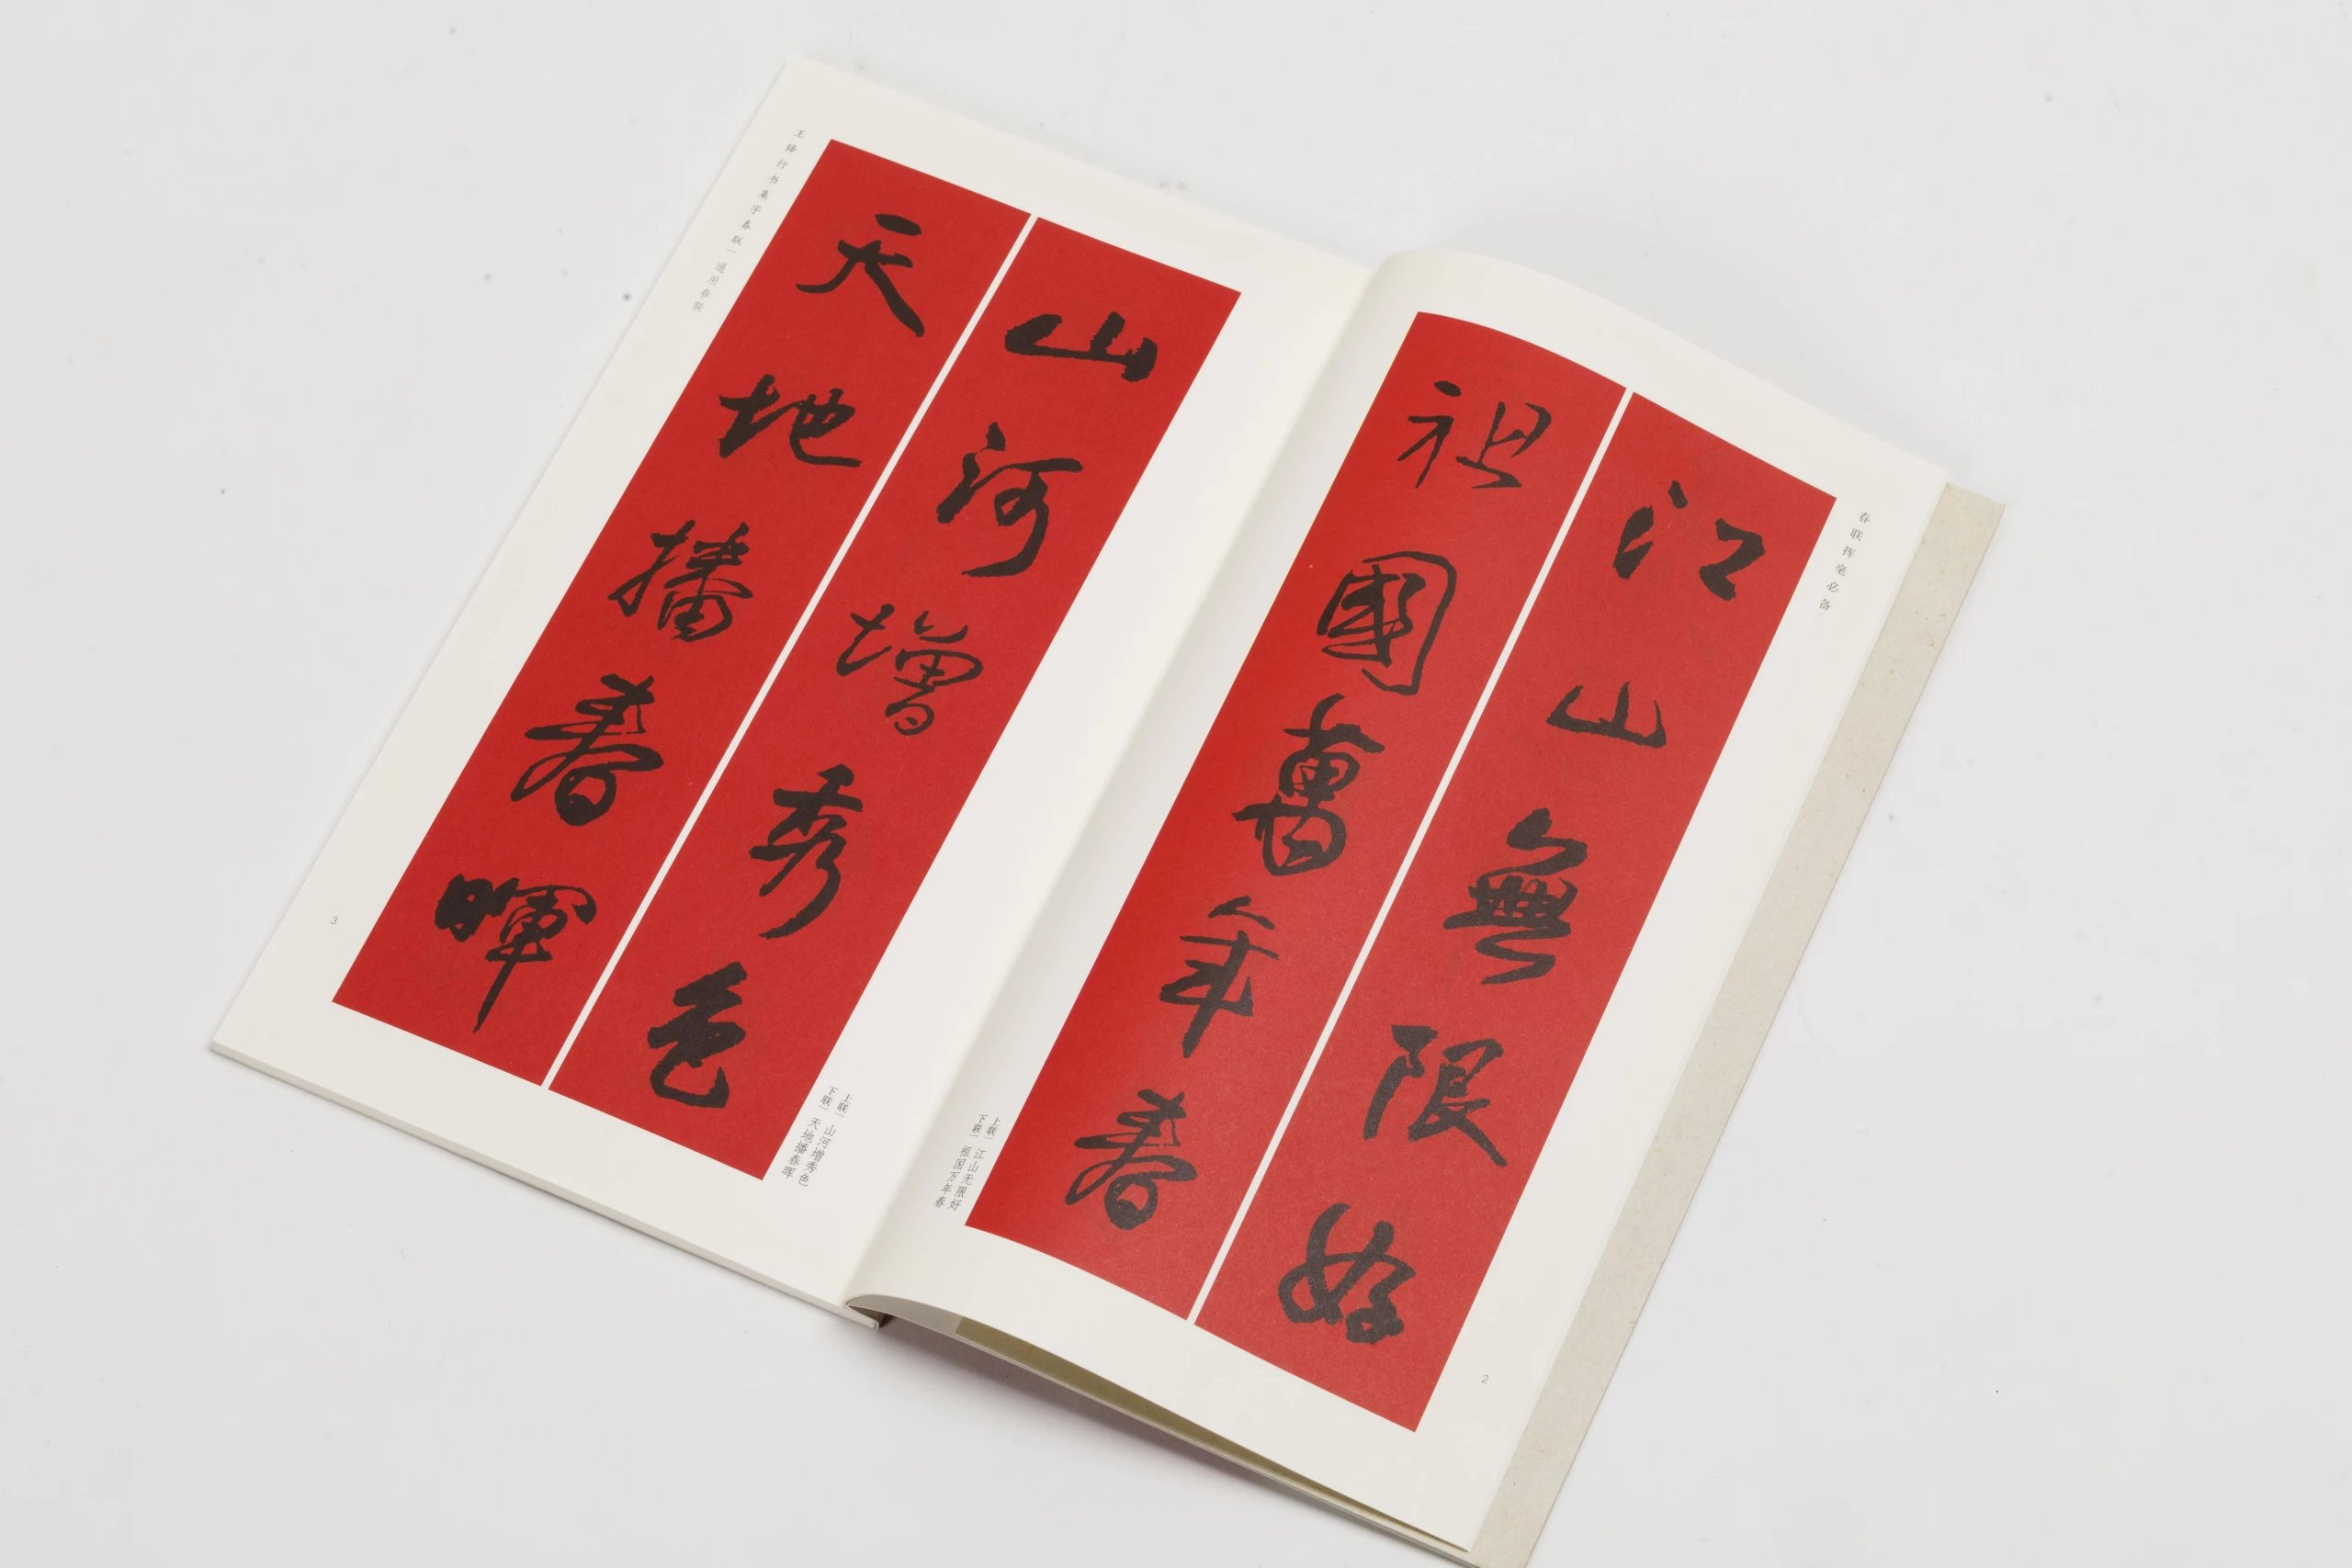 春联挥毫必备
江山無限好
祖國萬年春
上联｜江山无限好
下联｜祖国万年春
2
山河增秀色
天地播春暉
上联｜山河增秀色
下联｜天地播春晖
王铎行书集字春联｜通用春联
3